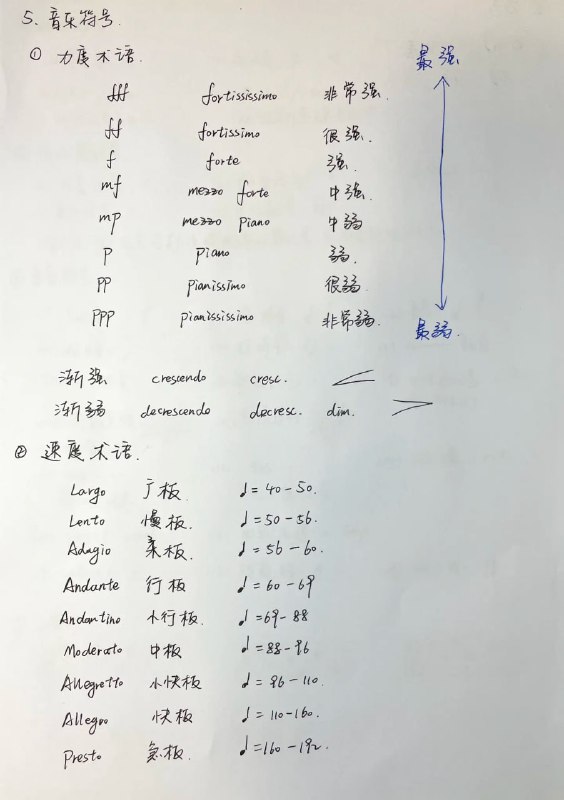 5. 音乐符号.
① 力度术语. 最强
fff fortississimo 非常强.
ff fortissimo 很强.
f forte 强.
mf mezzo forte 中强.
mp mezzo piano 中弱
p piano 弱.
pp pianissimo 很弱.
ppp pianississimo 非常弱. 最弱.
渐强 crescendo cresc. <
渐弱 decrescendo decresc. dim. >
② 速度术语.
Largo 广板. ♩=40-50.
Lento 慢板. ♩=50-56.
Adagio 柔板. ♩=56-60.
Andante 行板 ♩=60-69
Andantino 小行板. ♩=69-88
Moderato 中板 ♩=88-96
Allegretto 小快板 ♩=96-110.
Allegro 快板 ♩=110-160.
Presto 急板. ♩=160-192.